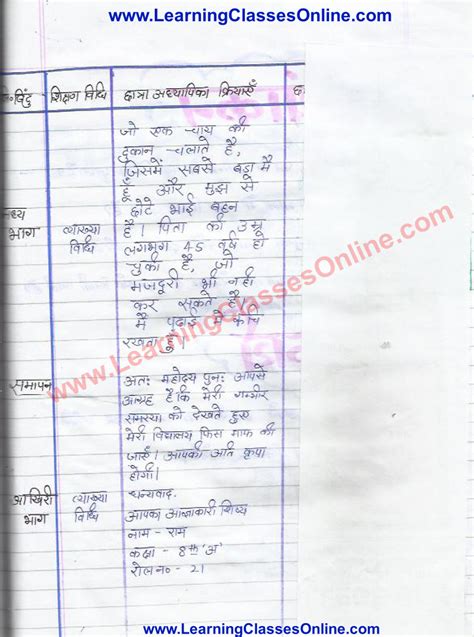 www.LearningClassesOnline.com
शिक्षण विधि छात्रा अध्यापिका क्रियाएँ
जो एक चाय की
दुकान चलाते है,
जिसमें सबसे बड़ा मै
हूँ और मुझ से
छोटे भाई बहन
मध्य भाग व्याख्या विधि है। पिता की उम्र
लगभग 45 वर्ष हो
चुकी है, जो
मजदूरी भी नही
कर सकते है,
मै पढ़ाई मे रूचि
रखता हूँ।
www.LearningClassesOnline.com
समापन अतः महोदय पुनः आपसे
आग्रह है कि मेरी गम्भीर
समस्या को देखते हुए
मेरी विद्यालय फिस माफ की
जाएँ। आपकी अति कृपा
होगी।
आखिरी भाग व्याख्या विधि धन्यवाद.
आपका आज्ञाकारी शिष्य
नाम - राम
कक्षा - 8th 'अ'
रोल न० - 21
www.LearningClassesOnline.com